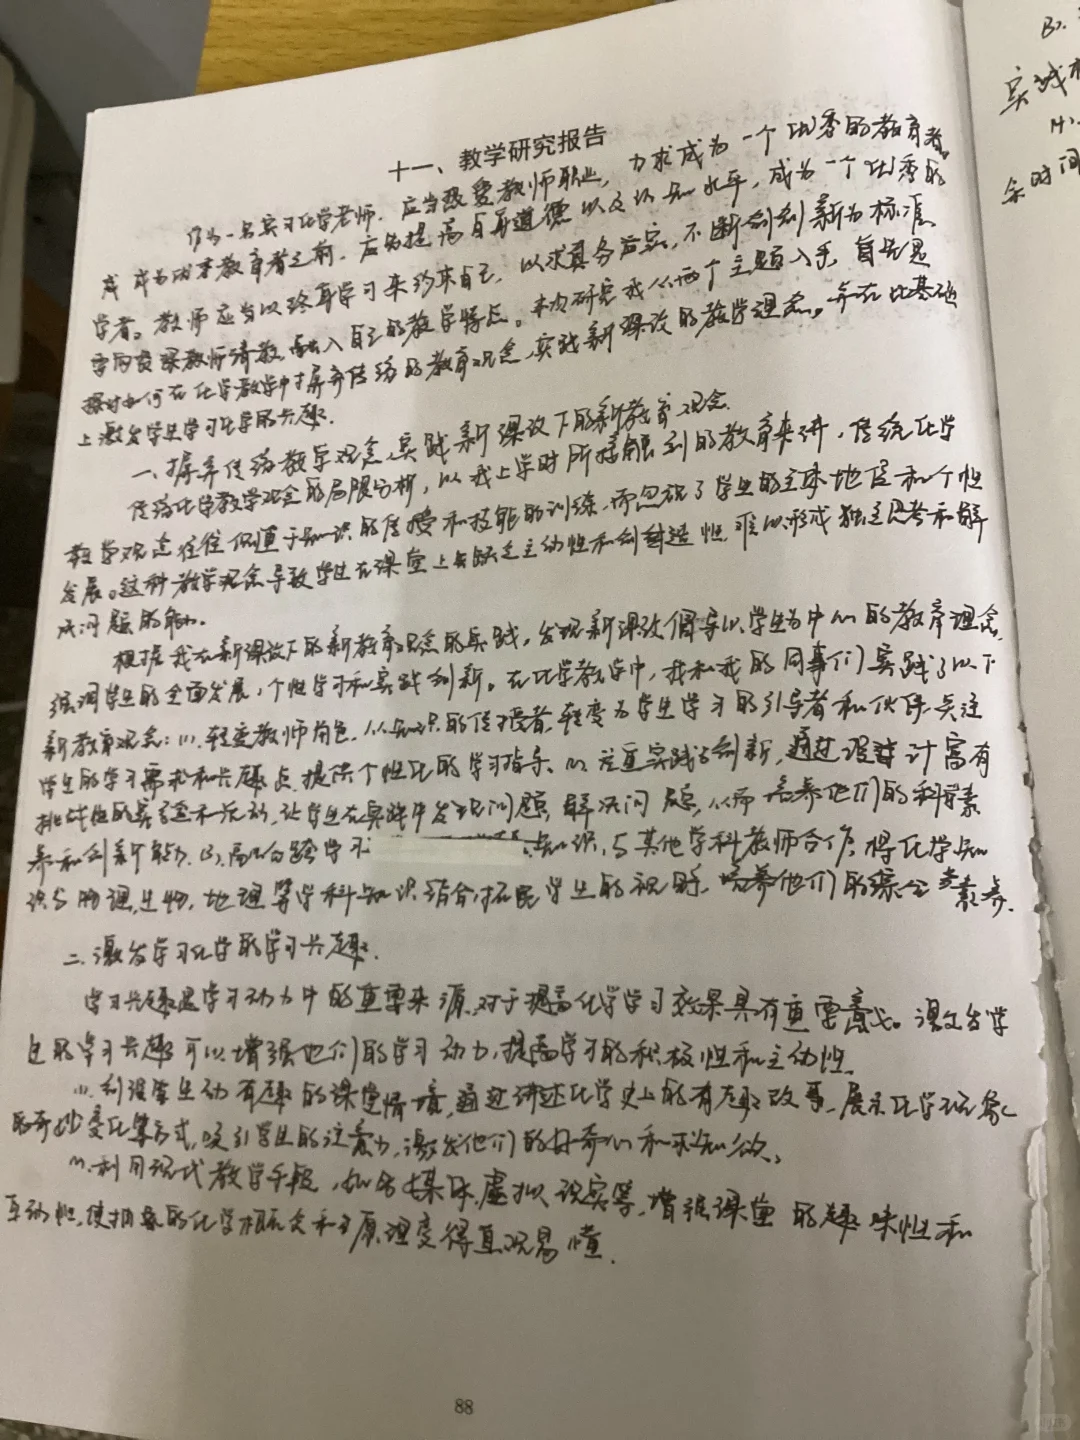 十一、教学研究报告
作为一名实习化学老师，应当热爱教师职业，力求成为一个优秀的教育者。
在成为教育者之前，应当提高自身道德以及认知水平，成为一个优秀的
学者。教师应当以终身学习来约束自己，以求真务实，不断创新为标准
要向资深教师请教，融入自己的教学特点。本次研究我从两个主题入手，首先是
探讨如何在化学教学中摒弃传统的教育观念，实践新课改的教学理念。并在此基础
上激发学生学习化学的兴趣。
一、摒弃传统教学观念，实践新课改下的新教育观念.
传统化学教学观念的局限分析，以我上学时所接触到的教育来讲，传统化学
教学观念往往侧重于知识的传授和技能的训练，而忽视了学生的主体地位和个性
发展。这种教学观念导致学生在课堂上缺乏主动性和创造性，难以形成独立思考和解
决问题的能力.
根据我在新课改下的新教育观念的实践，发现新课改倡导以学生为中心的教育理念，
强调学生的全面发展，个性学习和实践创新。在化学教学中，我和我的同事们实践了以下
新教育观念：(1).转变教师角色，从知识的传授者，转变为学生学习的引导者和伙伴，关注
学生的学习需求和兴趣点，提供个性化的学习指导、(2)注重实践与创新，通过设计富有
挑战性的实验和活动，让学生在实践中发现问题，解决问题，从而培养他们的科学素
养和创新能力.(3).
知识，与其他学科教师合作，将化学知
识与物理，生物，地理等学科知识结合，拓展学生的视野，培养他们的综合素养.
二、激发学习化学的学习兴趣.
学习兴趣是学习动力中的重要来源，对于提高化学学习效果具有重要意义。激发学
生的学习兴趣可以增强他们的学习动力，提高学习的积极性和主动性.
(1).创设生动有趣的课堂情境，通过讲述化学史上的有趣故事，展示化学现象
的奇妙变化等方式，吸引学生的注意力，激发他们的好奇心和求知欲。
(2).利用现代教学手段，如多媒体，虚拟实等，增强课堂的趣味性和
互动性，使抽象的化学概念和原理变得直观易懂.
88
实践
余时间